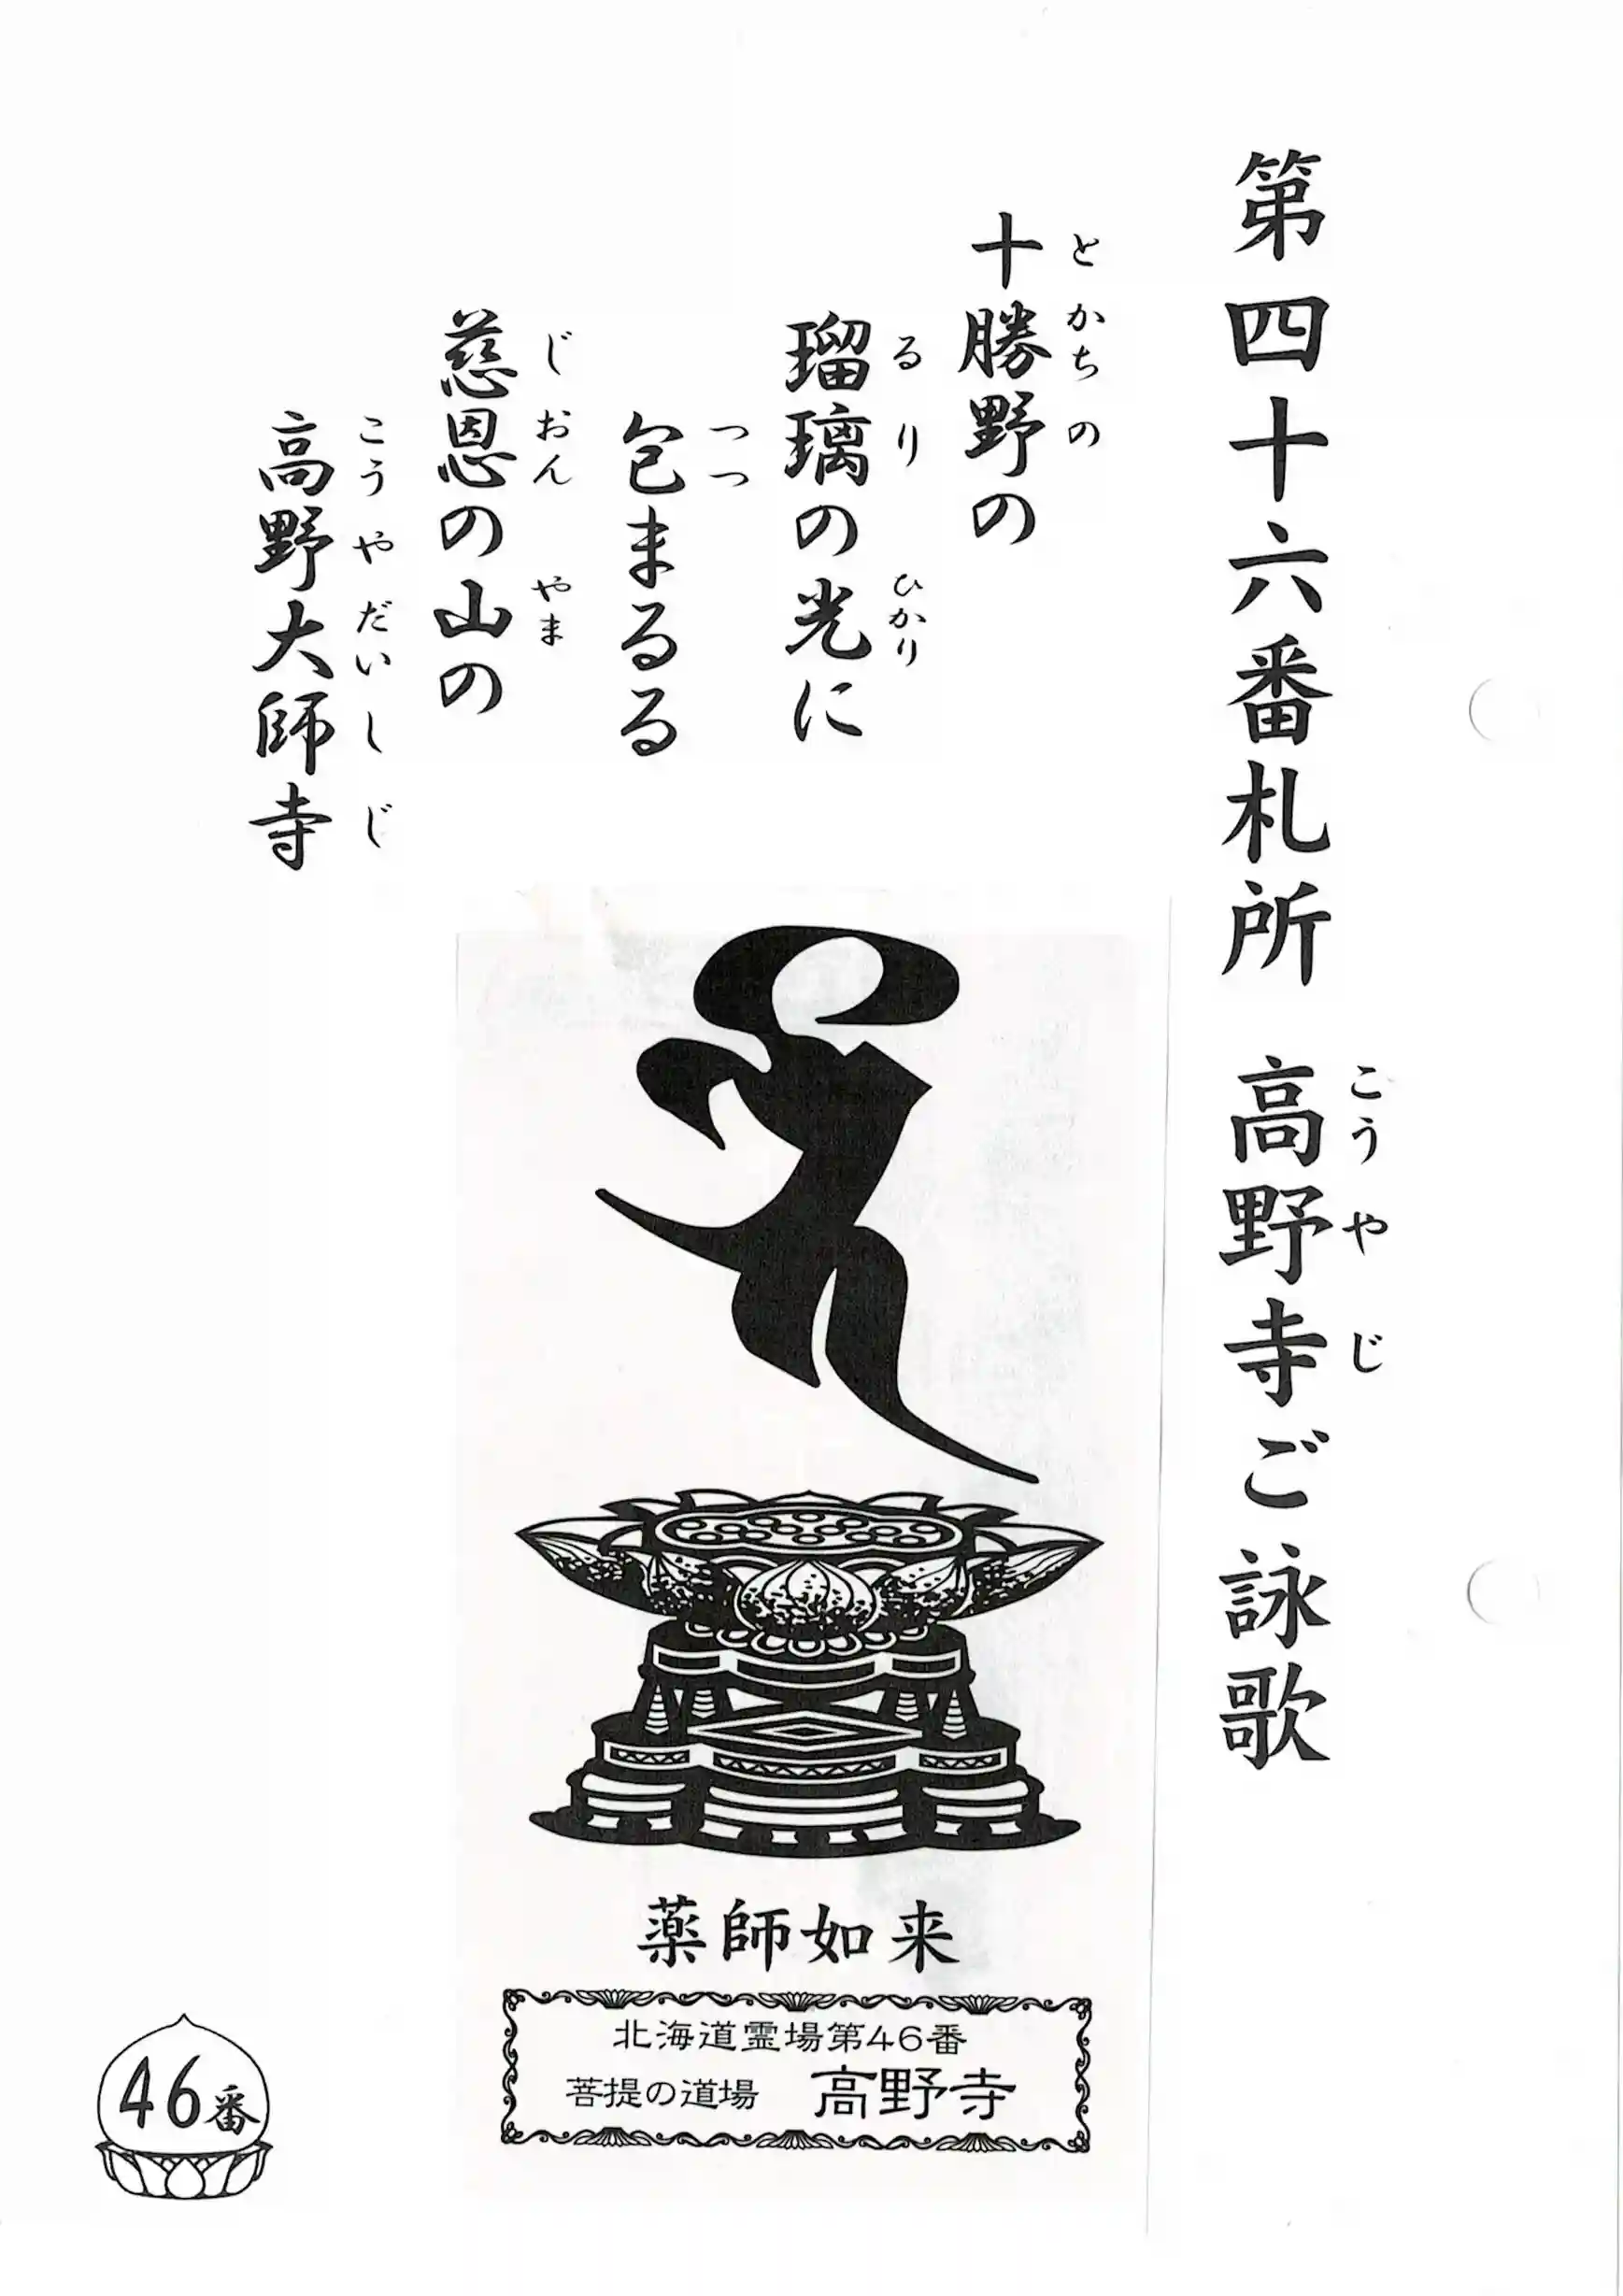 第四十六番札所 高野寺ご詠歌
こうやじ
十勝野の
とかちの
瑠璃の光に
るり ひかり
包まるる
つつ
慈恩の山の
じおん やま
高野大師寺
こうやだいしじ
薬師如来
北海道霊場第46番
菩提の道場 高野寺
46番